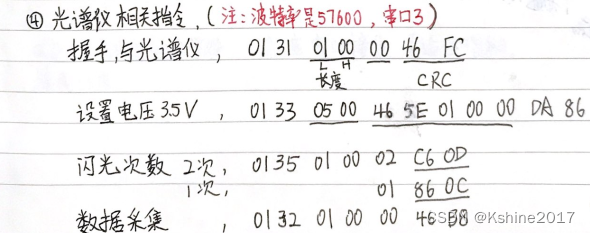 ④ 光谱仪相关指令，（注：波特率是57600，串口3）
握手，与光谱仪， 01 31 01 00 00 46 FC
L H
长度 CRC
设置电压3.5V， 01 33 05 00 46 5E 01 00 00 DA 86
闪光次数 2次， 01 35 01 00 02 C6 0D
1次， 01 86 0C
数据采集， 01 32 01 00 00 46 B8
CSDN @Kshine2017